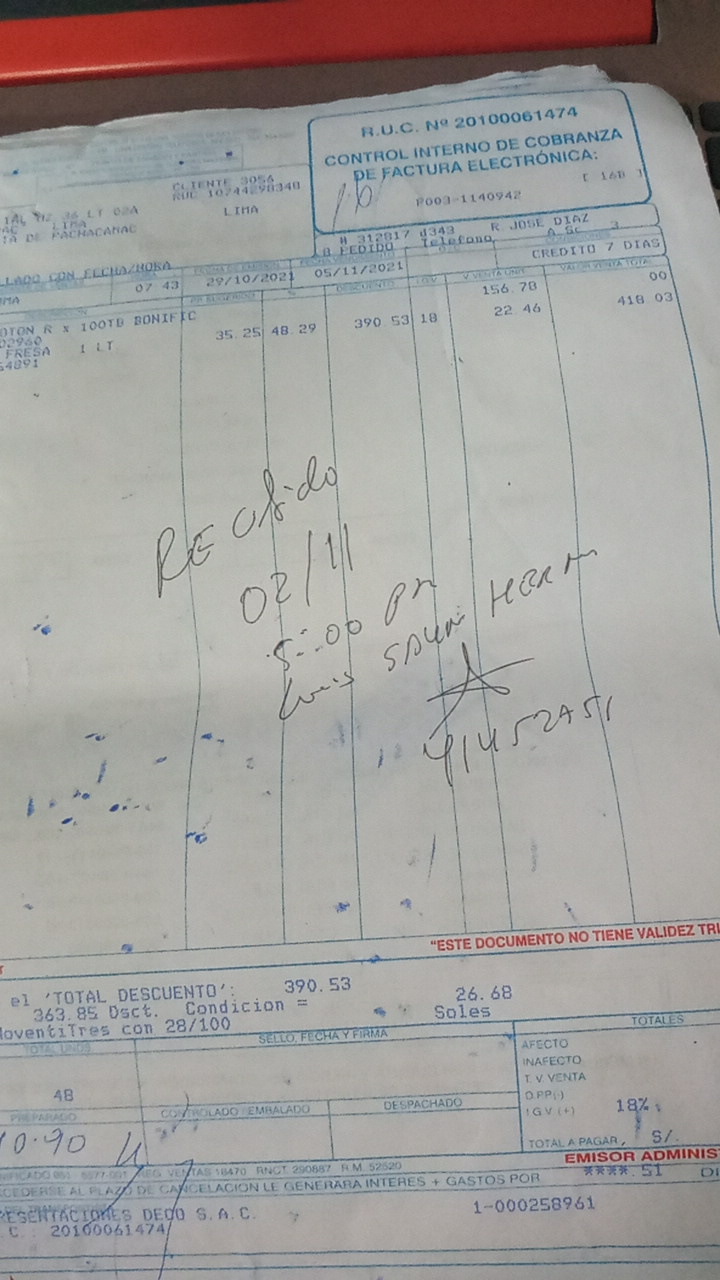 R.U.C. Nº 20100061474
CONTROL INTERNO DE COBRANZA
DE FACTURA ELECTRÓNICA:
F003-1140942 [ 16D ]
CLIENTE 3056
RUC 10744298340
LIMA
MZ 36 LT 02A
LIMA
DE PACHACAMAC
# 312817 d343 R JOSE DIAZ
PEDIDO - Telefono A Sc 3
CREDITO 7 DIAS
LLADO CON FECHA/HORA
07 43 29/10/2021 05/11/2021
DESCUENTO I.G.V. V.VENTA UNIT. VALOR VENTA TOTAL
R x 100TB BONIFIC 156.78 00
02960 35.25 48.29 390 53 18 22.46 418.03
FRESA 1 LT
54891
RECibido
02/11
5:00 Pm
Luis
"ESTE DOCUMENTO NO TIENE VALIDEZ TRI
el 'TOTAL DESCUENTO': 390.53 26.68
363.85 Dsct. Condicion = Soles
NoventiTres con 28/100
TOTAL UNDS SELLO, FECHA Y FIRMA TOTALES
48
AFECTO
INAFECTO
T. V. VENTA
O.PP(-)
I.G.V (+) 18%
TOTAL A PAGAR, S/.
PREPARADO CONTROLADO EMBALADO DESPACHADO
REG. VENTAS 18470 RNCT. 290887 R.M. 52520
EMISOR ADMINIS
CEDERSE AL PLAZO DE CANCELACION LE GENERARA INTERES + GASTOS POR ****.51 DI
RESENTACIONES DECO S.A.C. 1-000258961
C. 20100061474